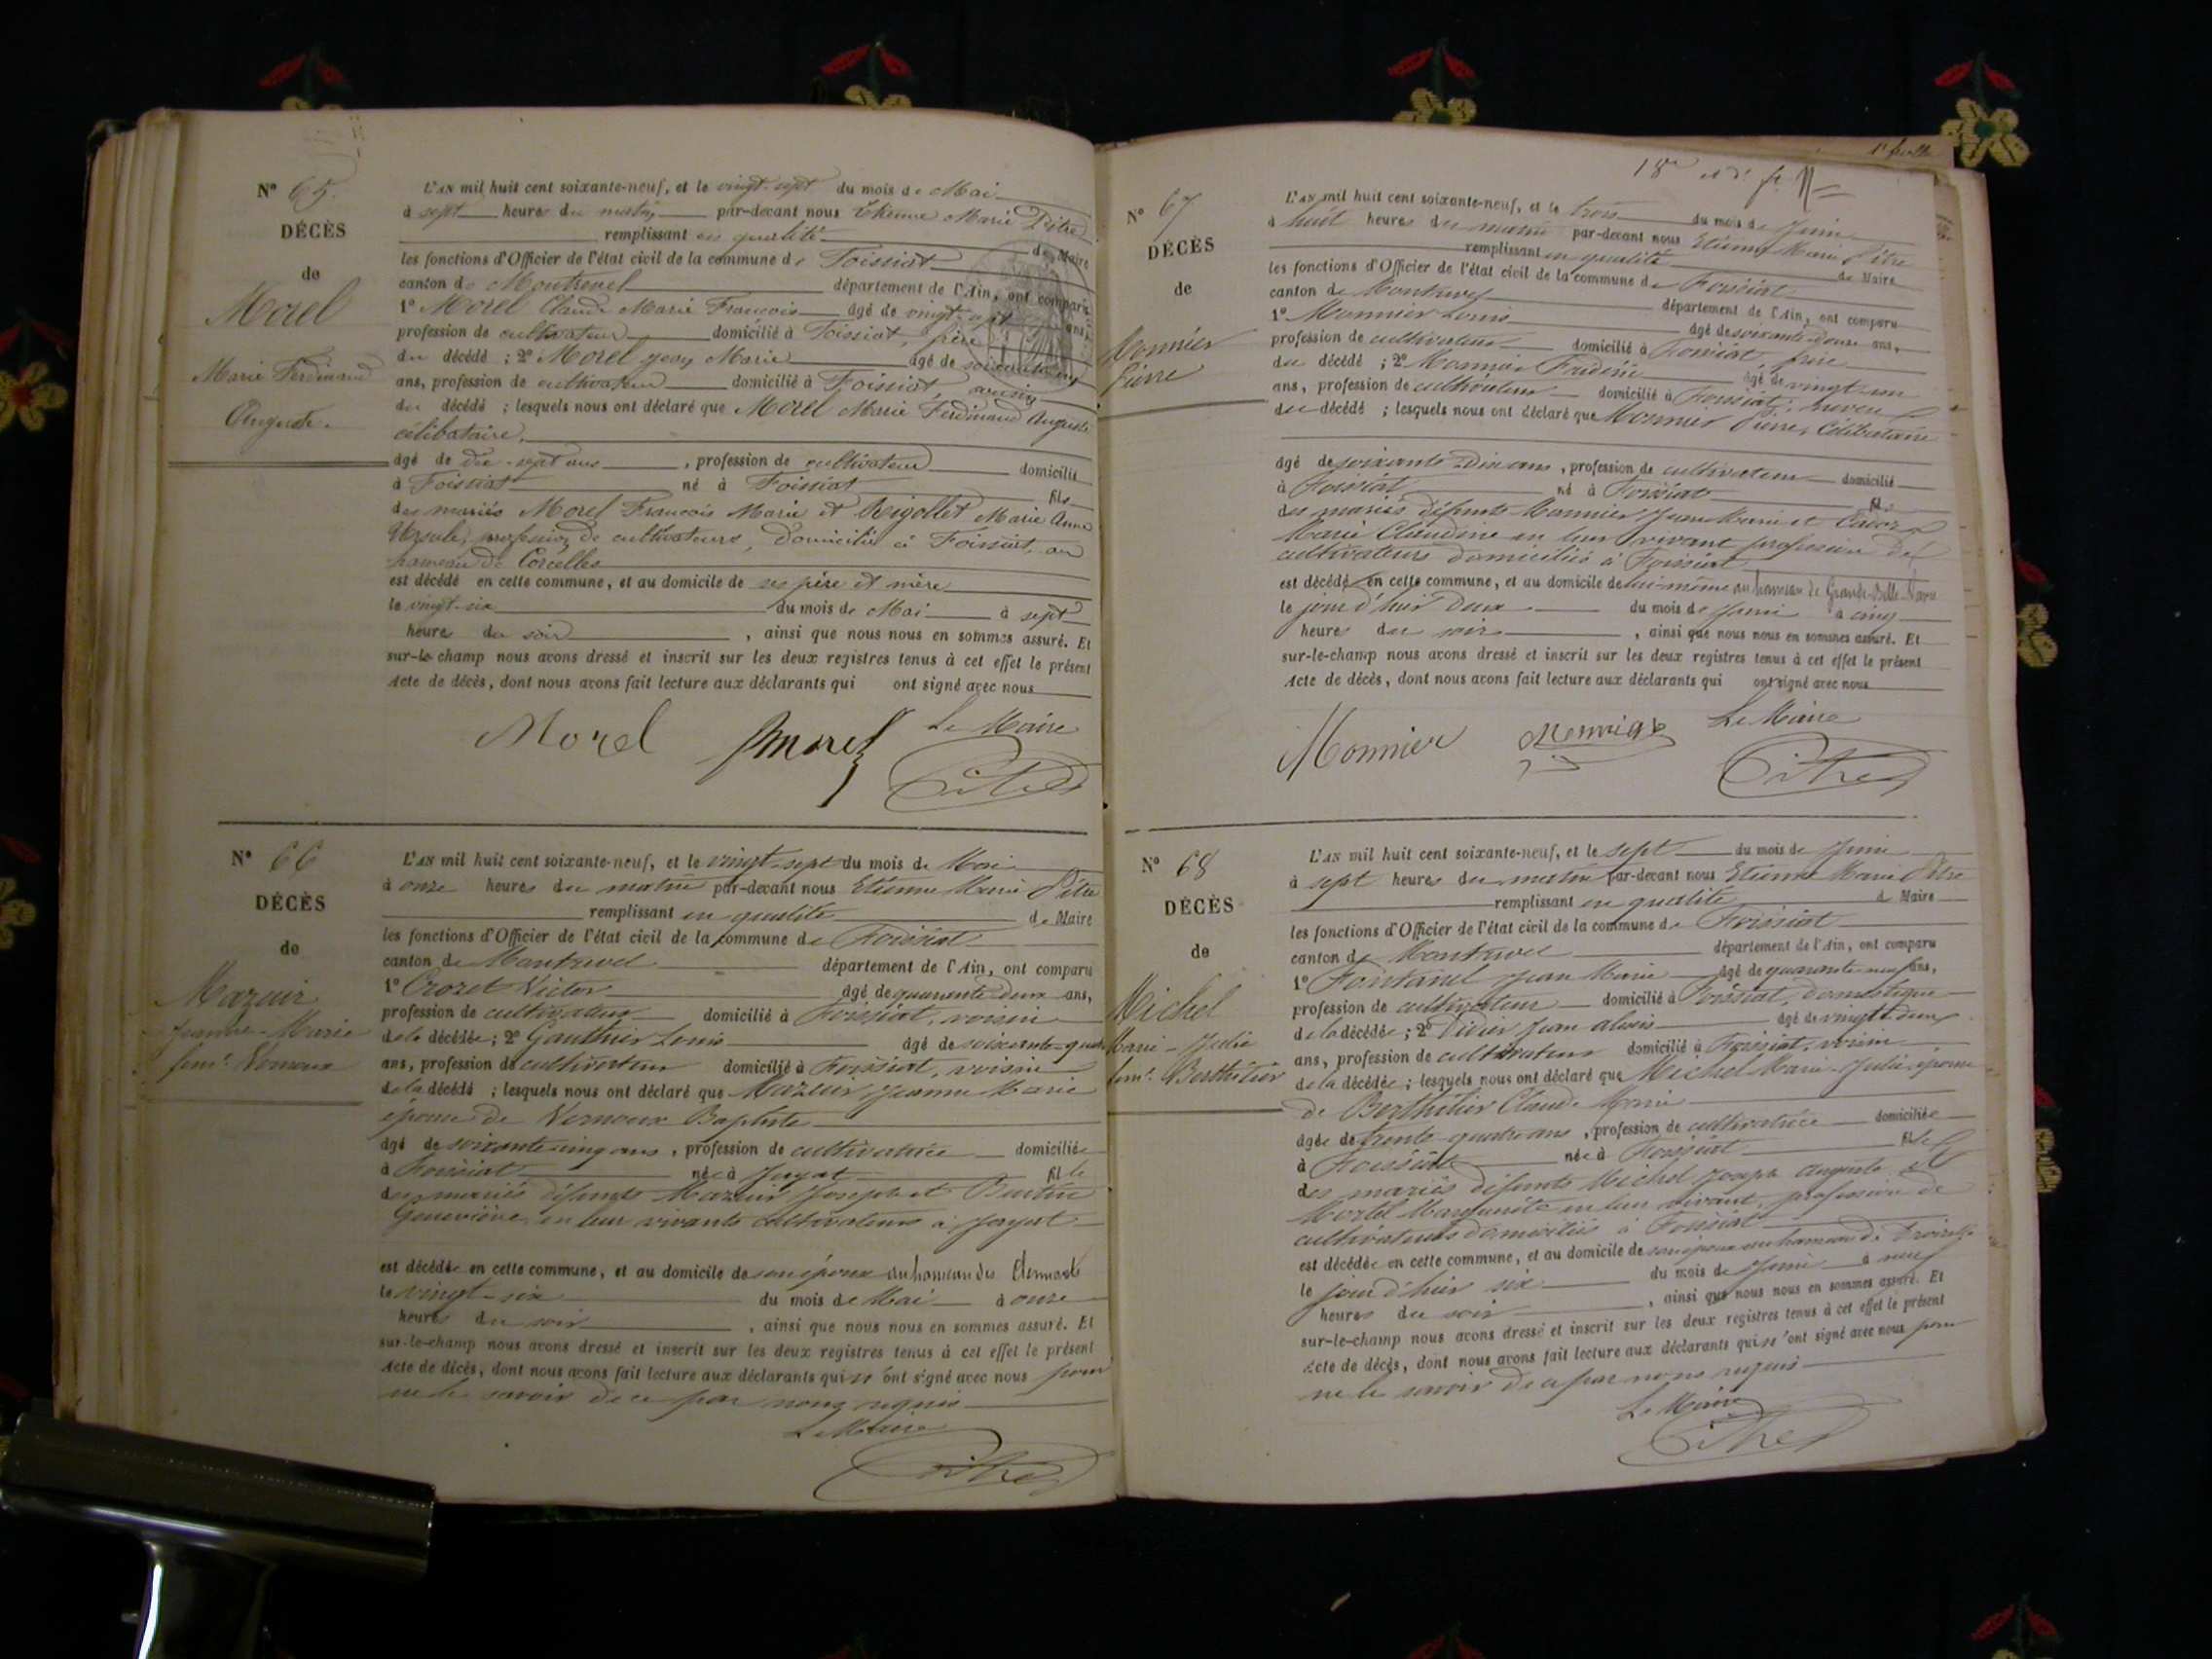 N° 65.
DÉCÈS
de
Morel
Marie Ferdinand
Auguste.
L'AN mil huit cent soixante-neuf, et le vingt-sept du mois de Mai
à sept heures du matin par-devant nous Etienne Marie Pitre
remplissant en qualité de Maire
les fonctions d'Officier de l'état civil de la commune de Foissiat
canton de Montrevel département de l'Ain, ont comparu
1° Morel Claude Marie François âgé de vingt-sept ans,
profession de cultivateur domicilié à Foissiat, frère
du décédé ; 2° Morel Jean Marie âgé de
ans, profession de cultivateur domicilié à Foissiat, voisin
du décédé ; lesquels nous ont déclaré que Morel Marie Ferdinand Auguste
célibataire,
âgé de dix-sept ans, profession de cultivateur domicilié
à Foissiat né à Foissiat fils
des mariés Morel François Marie et Rigollet Marie Anne
Ursule, profession de cultivateurs, domiciliés à Foissiat, au
hameau de Corcelles
est décédé en cette commune, et au domicile de ses père et mère
le vingt-six du mois de Mai à sept
heures du soir, ainsi que nous nous en sommes assuré. Et
sur-le-champ nous avons dressé et inscrit sur les deux registres tenus à cet effet le présent
Acte de décès, dont nous avons fait lecture aux déclarants qui ont signé avec nous
Morel Jmorel Le Maire
Pitre
N° 66
DÉCÈS
de
Mazuir
Jeanne-Marie
fem. Vernoux
L'AN mil huit cent soixante-neuf, et le vingt-sept du mois de Mai
à onze heures du matin par-devant nous Etienne Marie Pitre
remplissant en qualité de Maire
les fonctions d'Officier de l'état civil de la commune de Foissiat
canton de Montrevel département de l'Ain, ont comparu
1° Crozet Victor âgé de quarante deux ans,
profession de cultivateur domicilié à Foissiat, voisin
de la décédée ; 2° Gauthier Louis âgé de soixante-quatre
ans, profession de cultivateur domicilié à Foissiat, voisin
de la décédé ; lesquels nous ont déclaré que Mazuir Jeanne Marie
épouse de Vernoux Baptiste
âgé de soixante-cinq ans, profession de cultivatrice domiciliée
à Foissiat née à Jayat fille
des mariés défunts Mazuir Joseph et
Geneviève, en leur vivants cultivateurs à Jayat
est décédée en cette commune, et au domicile de son époux au hameau des
le vingt-six du mois de Mai à onze
heures du soir, ainsi que nous nous en sommes assuré. Et
sur-le-champ nous avons dressé et inscrit sur les deux registres tenus à cet effet le présent
Acte de décès, dont nous avons fait lecture aux déclarants qui n'ont signé avec nous pour
ne le savoir de ce par nous requis
Le Maire
Pitre
1e feuille
18e et d. f.
N° 67
DÉCÈS
de
Monnier
Pierre
L'AN mil huit cent soixante-neuf, et le trois du mois de Juin
à huit heures du matin par-devant nous Etienne Marie Pitre
remplissant en qualité de Maire
les fonctions d'Officier de l'état civil de la commune de Foissiat
canton de Montrevel département de l'Ain, ont comparu
1° Monnier Louis âgé de soixante-douze ans,
profession de cultivateur domicilié à Foissiat, frère
du décédé ; 2° Monnier Frédéric âgé de vingt-un
ans, profession de cultivateur domicilié à Foissiat, neveu
du décédé ; lesquels nous ont déclaré que Monnier Pierre, Célibataire
âgé de soixante-dix ans, profession de cultivateur domicilié
à Foissiat né à Foissiat fils
des mariés défunts Monnier Jean Marie et
Marie Claudine en leur vivant profession de
cultivateurs domiciliés à Foissiat
est décédé en cette commune, et au domicile de lui-même au hameau de Grande-Belle-Vavre
le jour d'hier deux du mois de Juin à cinq
heures du soir, ainsi que nous nous en sommes assuré. Et
sur-le-champ nous avons dressé et inscrit sur les deux registres tenus à cet effet le présent
Acte de décès, dont nous avons fait lecture aux déclarants qui ont signé avec nous
Monnier Monnier Le Maire
Pitre
N° 68
DÉCÈS
de
Michel
Marie-Julie
fem. Berthilier
L'AN mil huit cent soixante-neuf, et le sept du mois de Juin
à sept heures du matin par-devant nous Etienne Marie Pitre
remplissant en qualité de Maire
les fonctions d'Officier de l'état civil de la commune de Foissiat
canton de Montrevel département de l'Ain, ont comparu
1° Fontanel Jean Marie âgé de quarante-neuf ans,
profession de cultivateur domicilié à Foissiat, domestique
de la décédée ; 2° Divier Jean âgé de vingt-deux
ans, profession de cultivateur domicilié à Foissiat, voisin
de la décédée ; lesquels nous ont déclaré que Michel Marie-Julie épouse
de Berthilier Claude Marie
âgée de trente-quatre ans, profession de cultivatrice domiciliée
à Foissiat née à Foissiat fille
des mariés défunts Michel Joseph Auguste et
Morel Marguerite en leur vivant, profession de
cultivateurs domiciliés à Foissiat
est décédée en cette commune, et au domicile de son époux au hameau de
le jour d'hier six du mois de Juin à neuf
heures du soir, ainsi que nous nous en sommes assuré. Et
sur-le-champ nous avons dressé et inscrit sur les deux registres tenus à cet effet le présent
Acte de décès, dont nous avons fait lecture aux déclarants qui n'ont signé avec nous pour
ne le savoir de ce par nous requis
Le Maire
Pitre